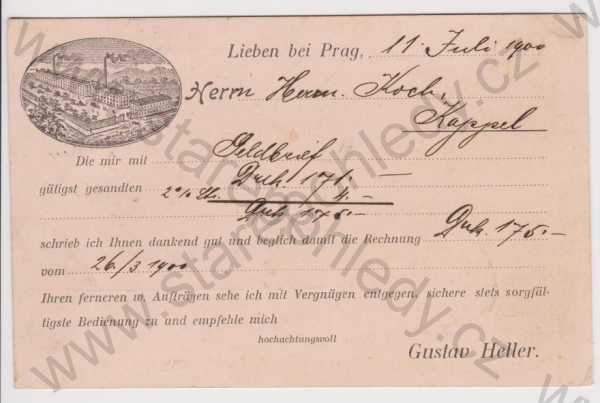 Lieben bei Prag, 11 Juli 1900
Herrn Herm. Koch,
Kappel
Die mir mit Geldbrief
gütigst gesandten
171.–
2% 4.–
175.–
schrieb ich Ihnen dankend gut und beglich damit die Rechnung 175.–
vom 26/3 1900
Ihren ferneren w. Aufträgen sehe ich mit Vergnügen entgegen, sichere stets sorgfäl-
tigste Bedienung zu und empfehle mich
hochachtungsvoll
Gustav Heller.
www.starepohledy.cz